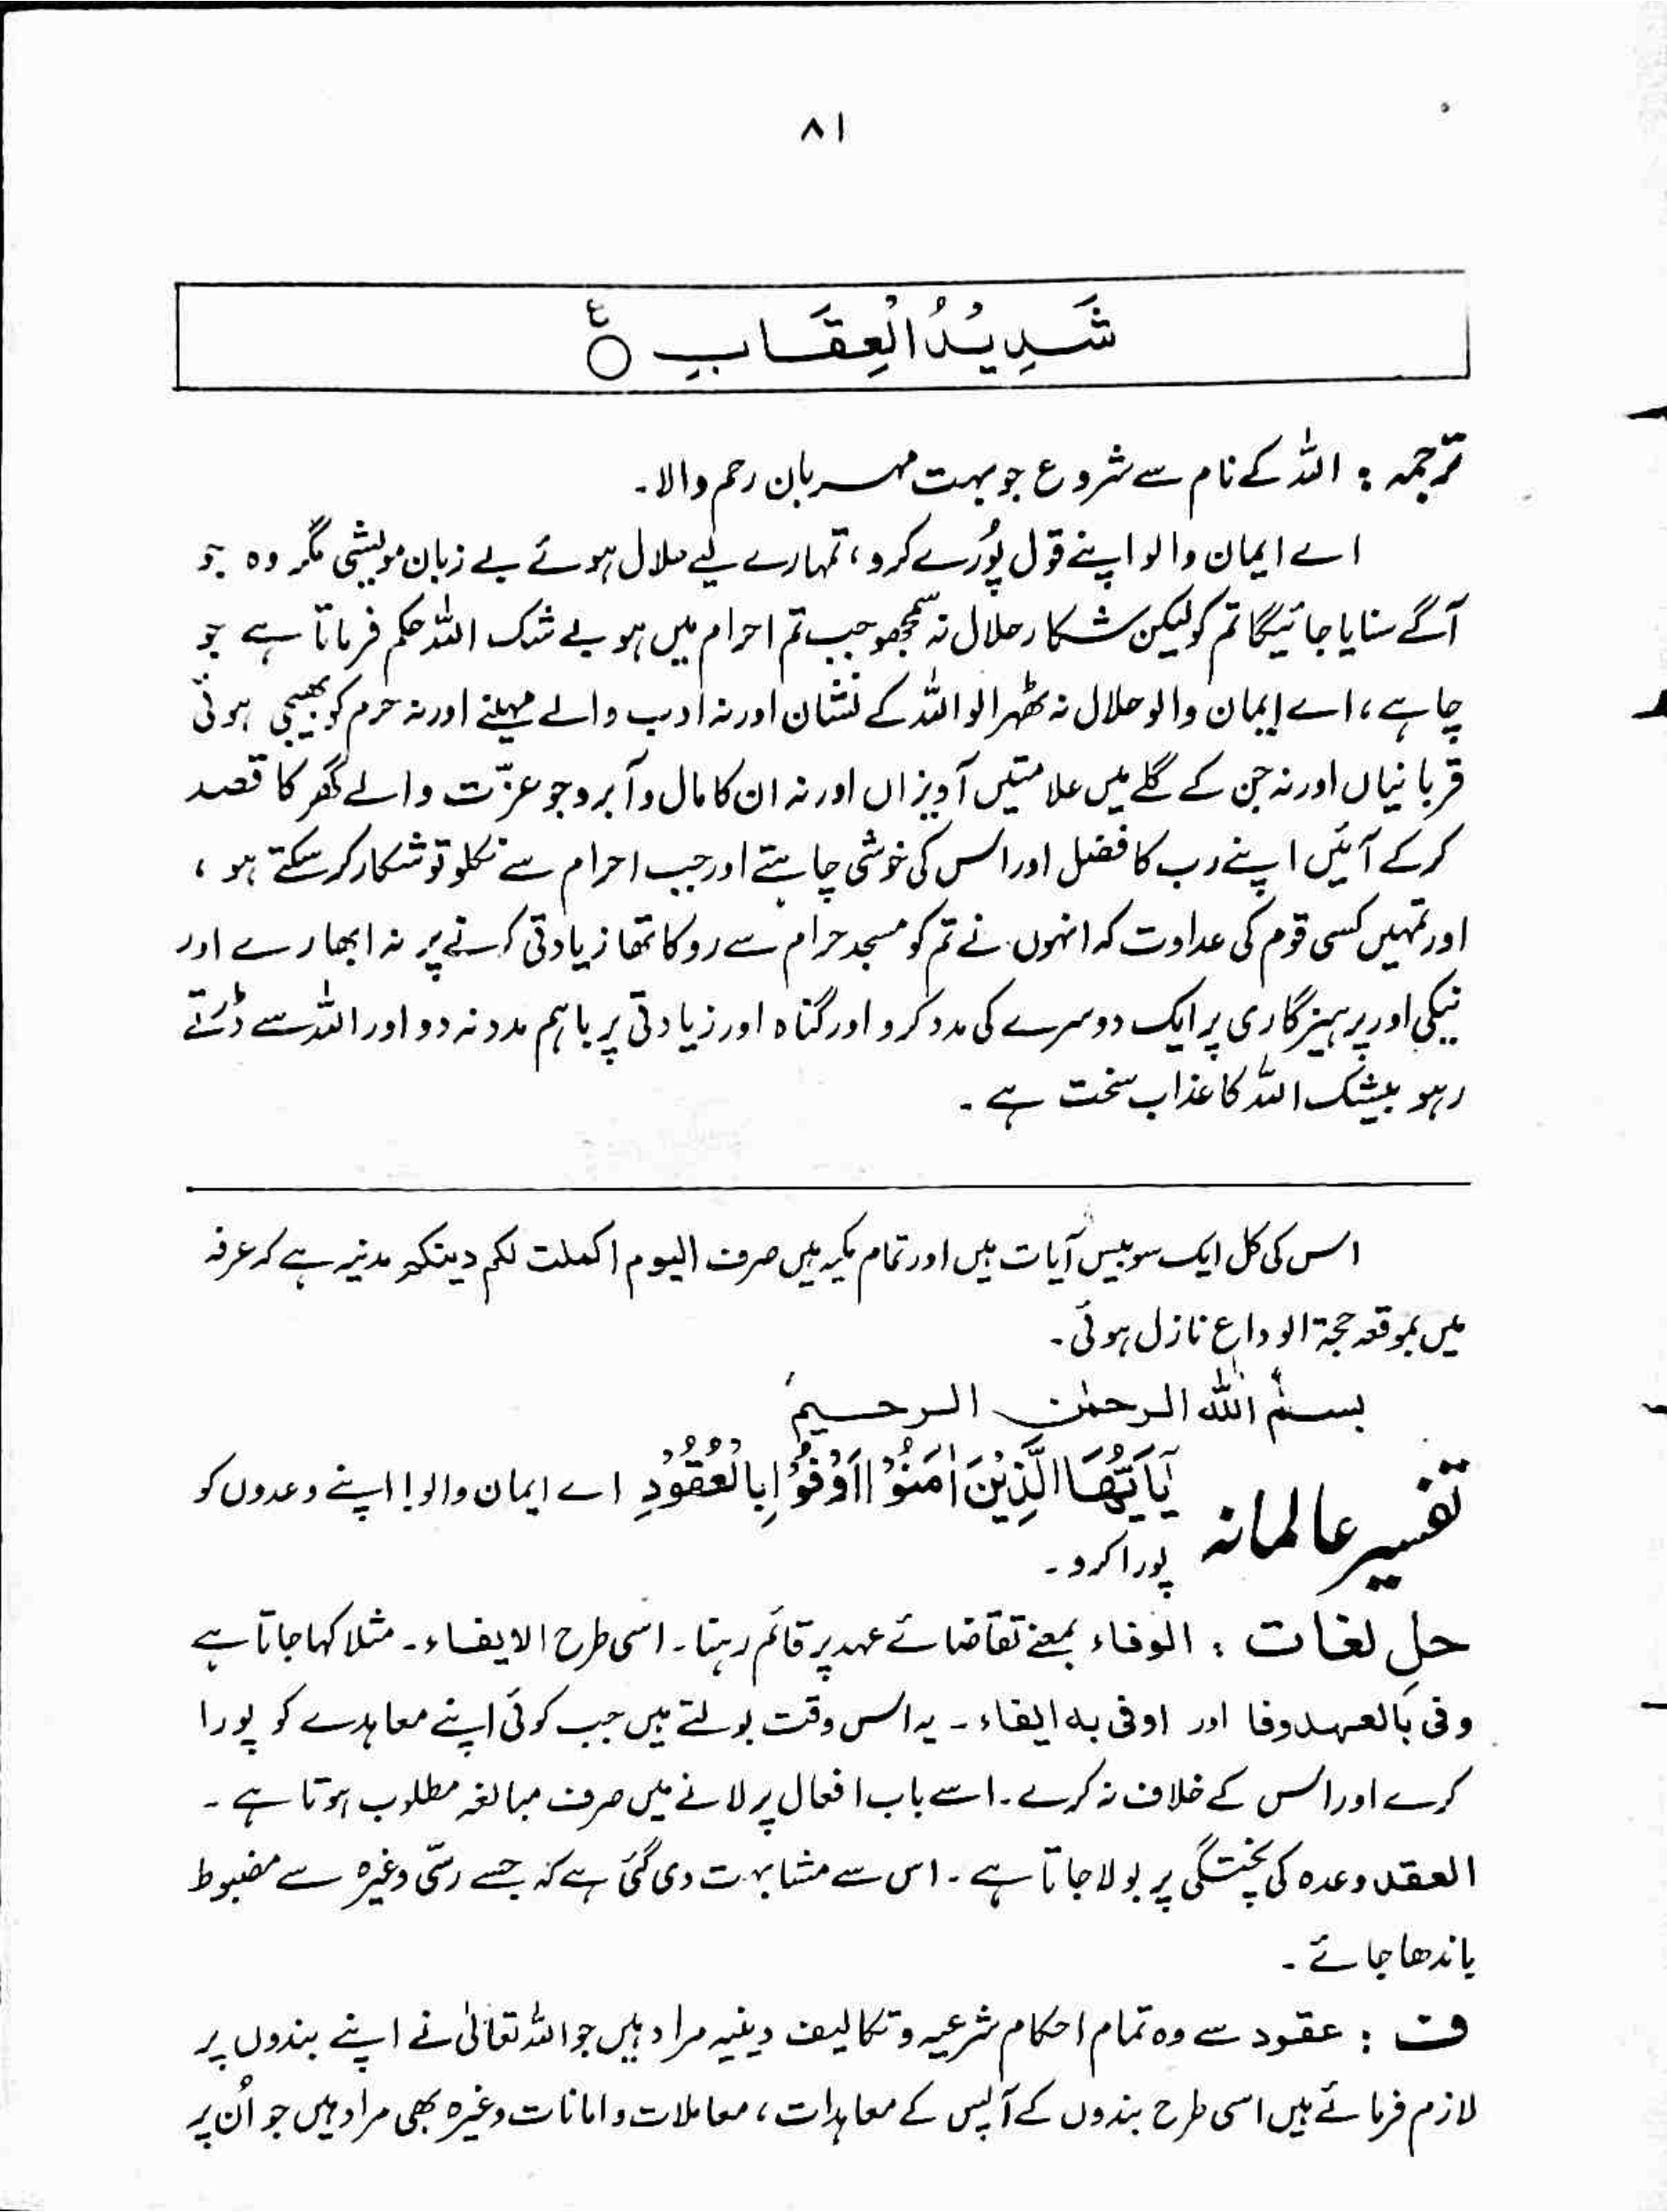 ۸۱
شَدِيْدُ الْعِقَابِ ○ ع
ترجمہ : اللہ کے نام سے شروع جو بہت مہربان رحم والا۔
اے ایمان والو اپنے قول پُورے کرو، تمہارے لیے حلال ہوئے بے زبان مویشی مگر وہ جو
آگے سنایا جائیگا تم کو لیکن شکار حلال نہ سمجھو جب تم احرام میں ہو بے شک اللہ حکم فرماتا ہے جو
چاہے، اے ایمان والو حلال نہ ٹھہرا لو اللہ کے نشان اور نہ ادب والے مہینے اور نہ حرم کو بھیجی ہوئی
قربانیاں اور نہ جن کے گلے میں علامتیں آویزاں اور نہ ان کا مال و آبرو جو عزّت والے گھر کا قصد
کر کے آئیں اپنے رب کا فضل اور اس کی خوشی چاہتے اور جب احرام سے نکلو تو شکار کر سکتے ہو ،
اور تمہیں کسی قوم کی عداوت کہ انہوں نے تم کو مسجد حرام سے روکا تھا زیادتی کرنے پر نہ ابھارے اور
نیکی اور پرہیزگاری پر ایک دوسرے کی مدد کرو اور گناہ اور زیادتی پر باہم مدد نہ دو اور اللہ سے ڈرتے
رہو بیشک اللہ کا عذاب سخت ہے ۔
اس کی کل ایک سو بیس آیات ہیں اور تمام مکیہ ہیں صرف الیوم اکملت لکم دینکم مدنیہ ہے کہ عرفہ
میں بموقعہ حجۃ الوداع نازل ہوئی۔
بسم اللہ الرحمٰن الرحیم
تفسیر عالمانہ يٰٓاَيُّهَا الَّذِيْنَ اٰمَنُوْٓا اَوْفُوْا بِالْعُقُوْدِ اے ایمان والو! اپنے وعدوں کو
پورا کرو ۔
حلِ لغات : الوفاء بمعنے تقاضائے عہد پر قائم رہنا۔ اسی طرح الایفاء۔ مثلا کہا جاتا ہے
وفی بالعہد وفا اور اوفی بہ ایفاء۔ یہ اس وقت بولتے ہیں جب کوئی اپنے معاہدے کو پورا
کرے اور اس کے خلاف نہ کرے۔ اسے باب افعال پر لانے میں صرف مبالغہ مطلوب ہوتا ہے ۔
العقد وعدہ کی پختگی پر بولا جاتا ہے ۔ اس سے مشابہت دی گئی ہے کہ جسے رسّی وغیرہ سے مضبوط
باندھا جائے ۔
ف : عقود سے وہ تمام احکام شرعیہ و تکالیف دینیہ مراد ہیں جو اللہ تعالیٰ نے اپنے بندوں پر
لازم فرمائے ہیں اسی طرح بندوں کے آپس کے معاہدات، معاملات و امانات وغیرہ بھی مراد ہیں جو اُن پر